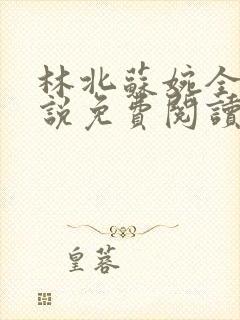 林北蘇婉全
説免費閱讀
皇蓉